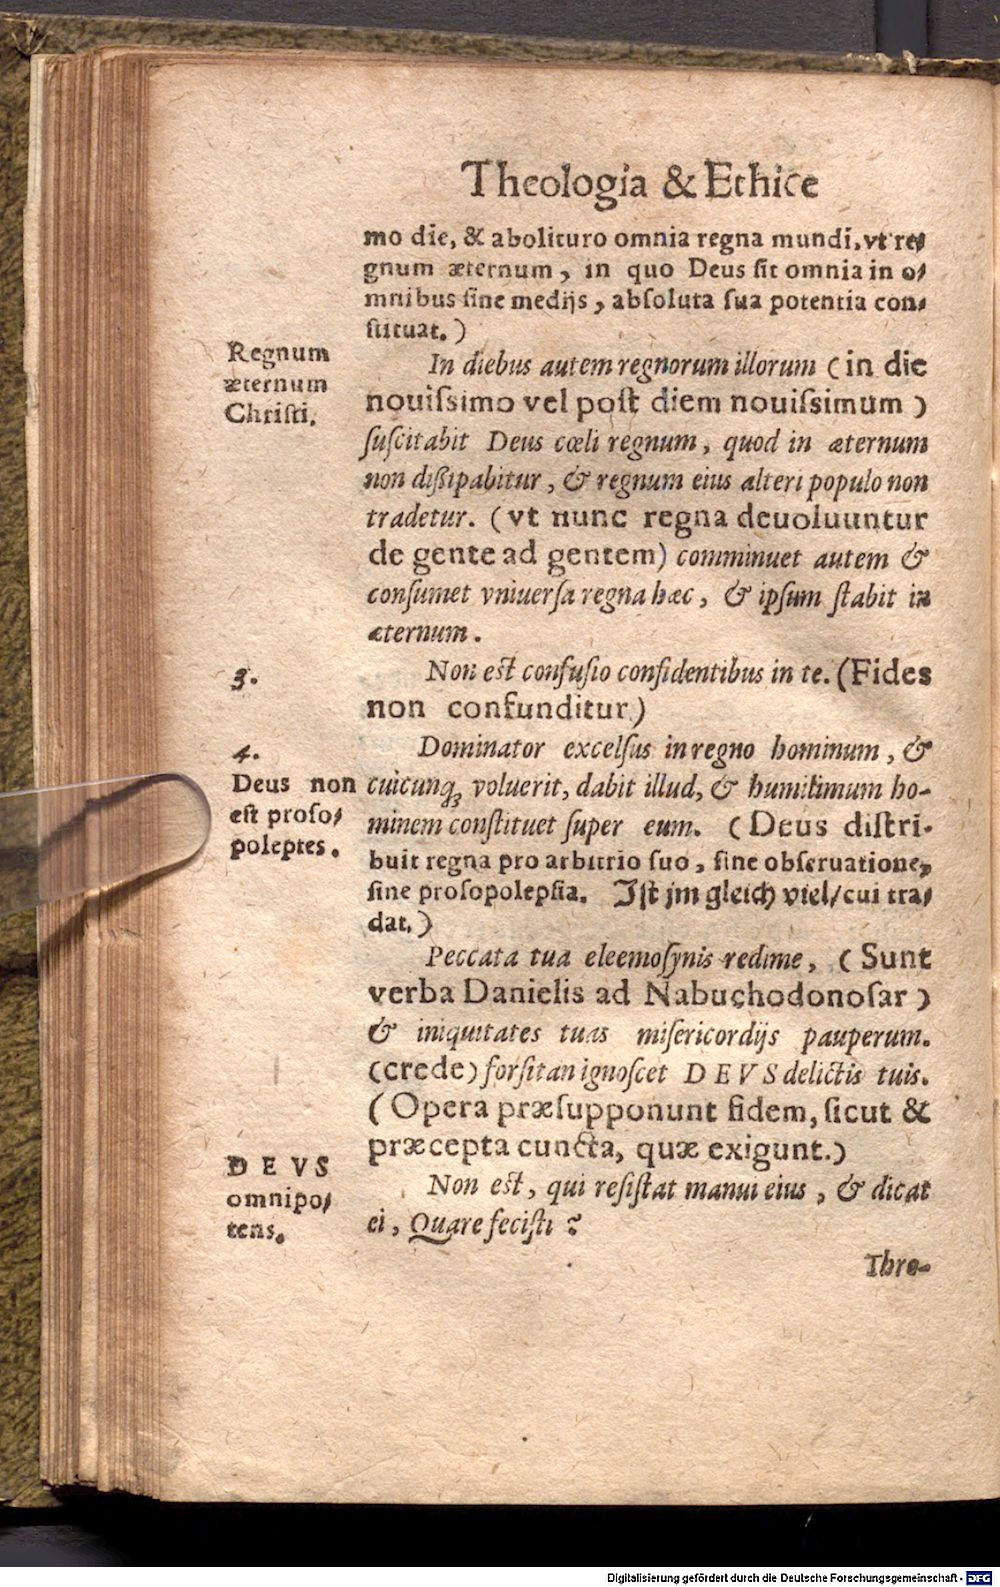 Theologia & Ethice
mo die, & abolituro omnia regna mundi, vt re⸗
gnum æternum, in quo Deus sit omnia in o⸗
mnibus sine medijs, absoluta sua potentia con⸗
stituat.)
Regnum
æternum
Christi.
In diebus autem regnorum illorum (in die
nouissimo vel post diem nouissimum)
suscitabit Deus cœli regnum, quod in æternum
non dißipabitur, & regnum eius alteri populo non
tradetur. (vt nunc regna deuoluuntur
de gente ad gentem) comminuet autem &
consumet vniuersa regna hæc, & ipsum stabit in
æternum.
3.
Non est confusio confidentibus in te. (Fides
non confunditur)
4.
Deus non
est proso⸗
poleptes.
Dominator excelsus in regno hominum, &
cuicunq; voluerit, dabit illud, & humilimum ho-
minem constituet super eum. (Deus distri-
buit regna pro arbitrio suo, sine obseruatione,
sine prosopolepsia. Ist jm gleich viel/cui tra⸗
dat.)
Peccata tua eleemosynis redime, (Sunt
verba Danielis ad Nabuchodonosar)
& iniquitates tuas misericordijs pauperum.
(crede) forsitan ignoscet DEVS delictis tuis.
(Opera præsupponunt fidem, sicut &
præcepta cuncta, quæ exigunt.)
DEVS
omnipo⸗
tens.
Non est, qui resistat manui eius, & dicat
ei, Quare fecisti?
Thre-
Digitalisierung gefördert durch die Deutsche Forschungsgemeinschaft - DFG